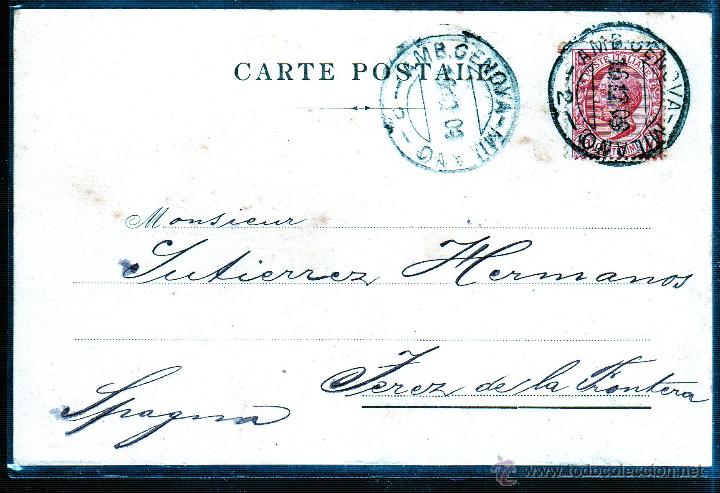 CARTE POSTALE
AMB. GENOVA-MILANO
2
AMB. GENOVA-MILANO
2
Monsieur
Gutierrez Hermanos
Jerez de la Frontera
Spagna
www.todocoleccion.net